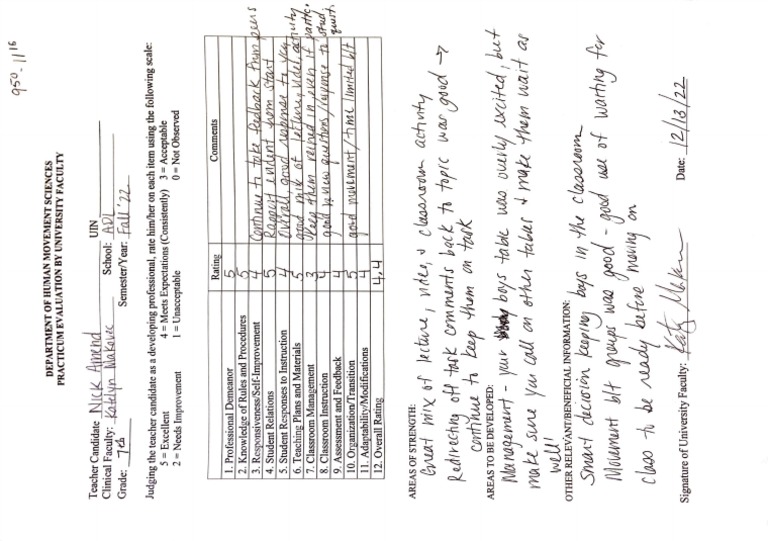 950-1116
DEPARTMENT OF HUMAN MOVEMENT SCIENCES
PRACTICUM EVALUATION BY UNIVERSITY FACULTY
Teacher Candidate Nick Amend UIN
Clinical Faculty: Katelyn Makovec School: ADL
Grade: 7th Semester/Year: Fall '22
Judging the teacher candidate as a developing professional, rate him/her on each item using the following scale:
5 = Excellent 4 = Meets Expectations (Consistently) 3 = Acceptable
2 = Needs Improvement 1 = Unacceptable 0 = Not Observed
Rating Comments
1. Professional Demeanor 5
2. Knowledge of Rules and Procedures 5
3. Responsiveness/Self-Improvement 4 Continue to take feedback from peers
4. Student Relations 5 Rapport evident from start
5. Student Responses to Instruction 4 Overall, good response to you
6. Teaching Plans and Materials 5 good mix of lecture, video, activity
7. Classroom Management 3 Keep them reined in even if partic.
8. Classroom Instruction 4 good review questions/response to stud. quest.
9. Assessment and Feedback 4
10. Organization/Transition 5 good movement/time limited btt
11. Adaptability/Modifications 4
12. Overall Rating 4.4
AREAS OF STRENGTH:
Great mix of lecture, video, & classroom activity
Redirecting off task comments back to topic was good →
continue to keep them on task
AREAS TO BE DEVELOPED:
Management - your boys table was overly excited, but
make sure you call on other tables & make them wait as
well!
OTHER RELEVANT/BENEFICIAL INFORMATION:
Smart decision keeping boys in the classroom
Movement btt groups was good - good use of waiting for
class to be ready before moving on
Signature of University Faculty: Date: 12/13/22